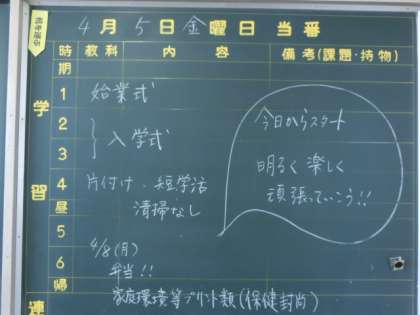 4月5日金曜日当番
時期 教科 内容 備考(課題・持物)
学習
1 始業式
2
3 入学式
4 片付け・短学活
昼 清掃なし
5
6 4/8(月)
帰 弁当!!
連 家庭環境等プリント類(保健封筒)
今日からスタート
明るく楽しく
頑張っていこう!!